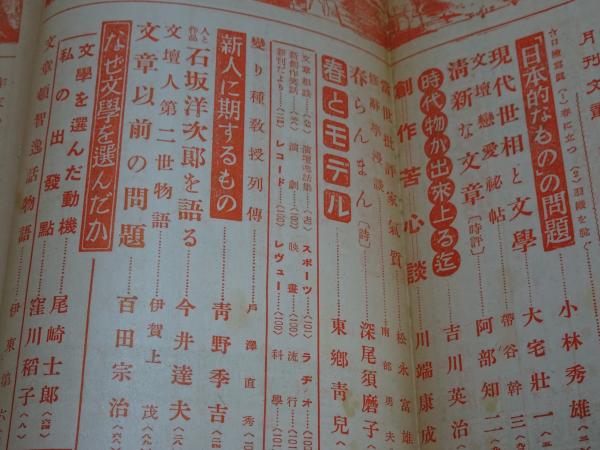 月刊文章
「日本的なもの」の問題
小林秀雄
現代世相と文學
大宅壯一
文壇戀愛秘帖
帶谷幹三
清新な文章〔時評〕
阿部知二
時代物が出來上る迄
吉川英治
創作苦心談
川端康成
當世批評家氣質
松永富雄
修辭學漫談
南部男夫
春らんまん〔詩〕
深尾須磨子
春とモデル
東鄕靑兒
スポーツ
ラヂオ
演劇
映畫
流行
新刊だより
レコード
レヴュー
科學
變り種敎授列傳
戸澤直秀
新人に期するもの
靑野季吉
人と作品
石坂洋次郎を語る
今井達夫
文壇人第二世物語
伊賀上茂
文章以前の問題
百田宗治
なぜ文學を選んだか
文學を選んだ動機
尾崎士郎
私の出發點
窪川稻子
文章頓智逸話物語
伊東